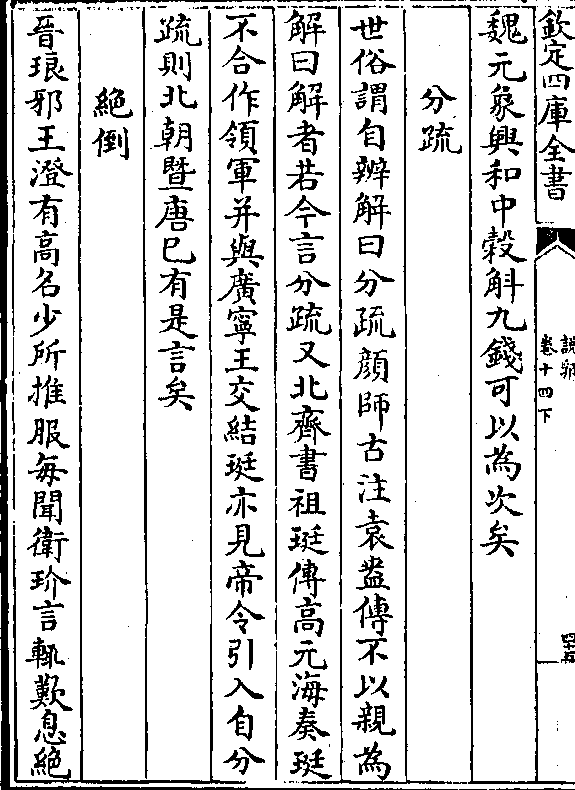 欽定四庫全書
說郛
卷十四下
四十五
魏元象興和中穀斛九錢可以為次矣
分疏
世俗謂自辨解曰分疏顔師古注袁盎傳不以親為
解曰解者若今言分疏又北齊書祖珽傳高元海奏珽
不合作領軍并與廣寧王交結珽亦見帝令引入自分
疏則北朝暨唐已有是言矣
絶倒
晉琅邪王澄有高名少所推服每聞衛玠言輒歎息絶